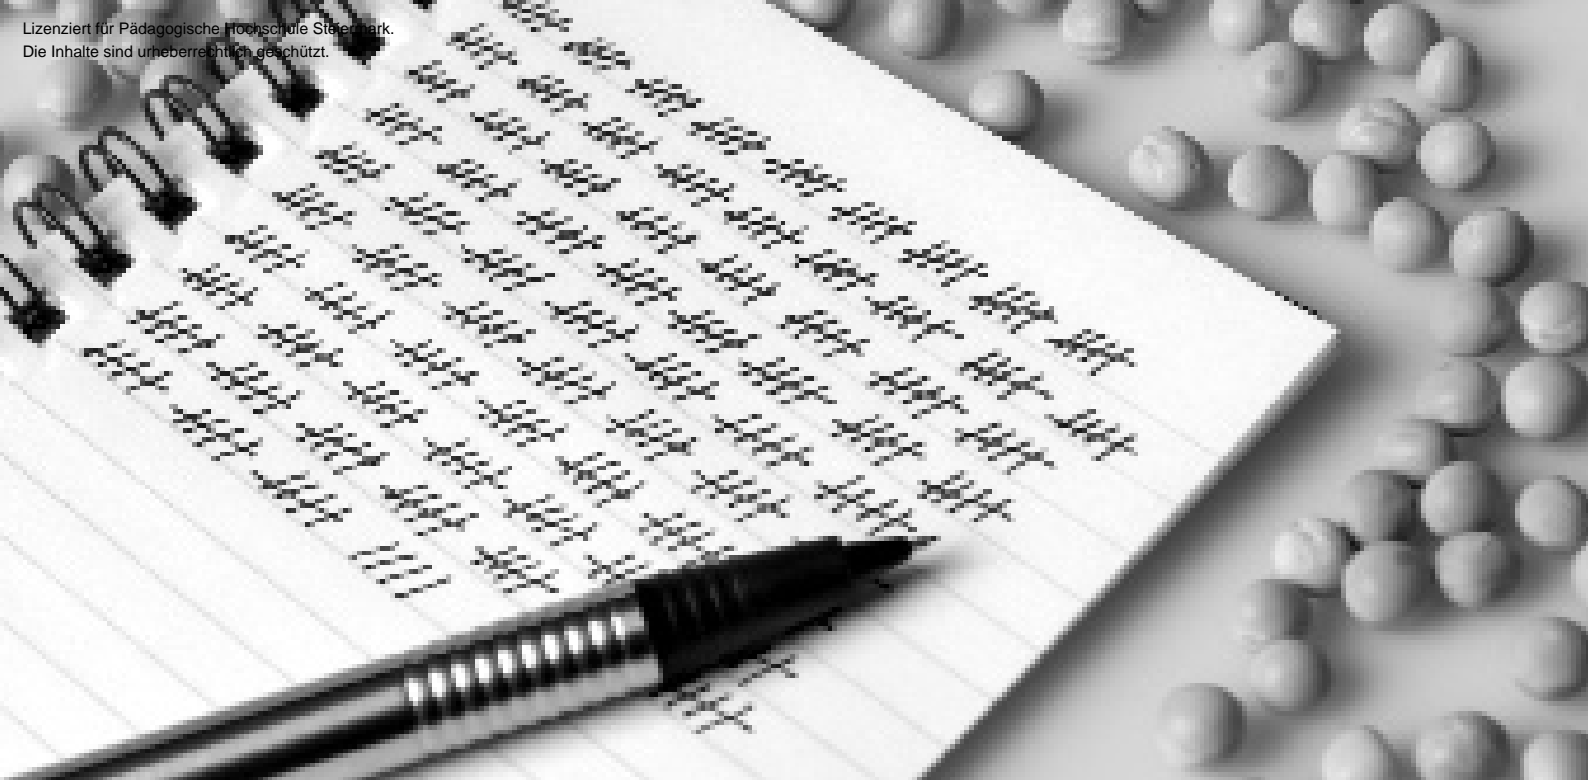 Lizenziert für Pädagogische Hochschule Steiermark.
Die Inhalte sind urheberrechtlich geschützt.